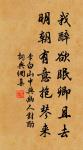 我醉欲眠卿且去
明朝有意抱琴来
李白山中与幽人对酌
词典网集